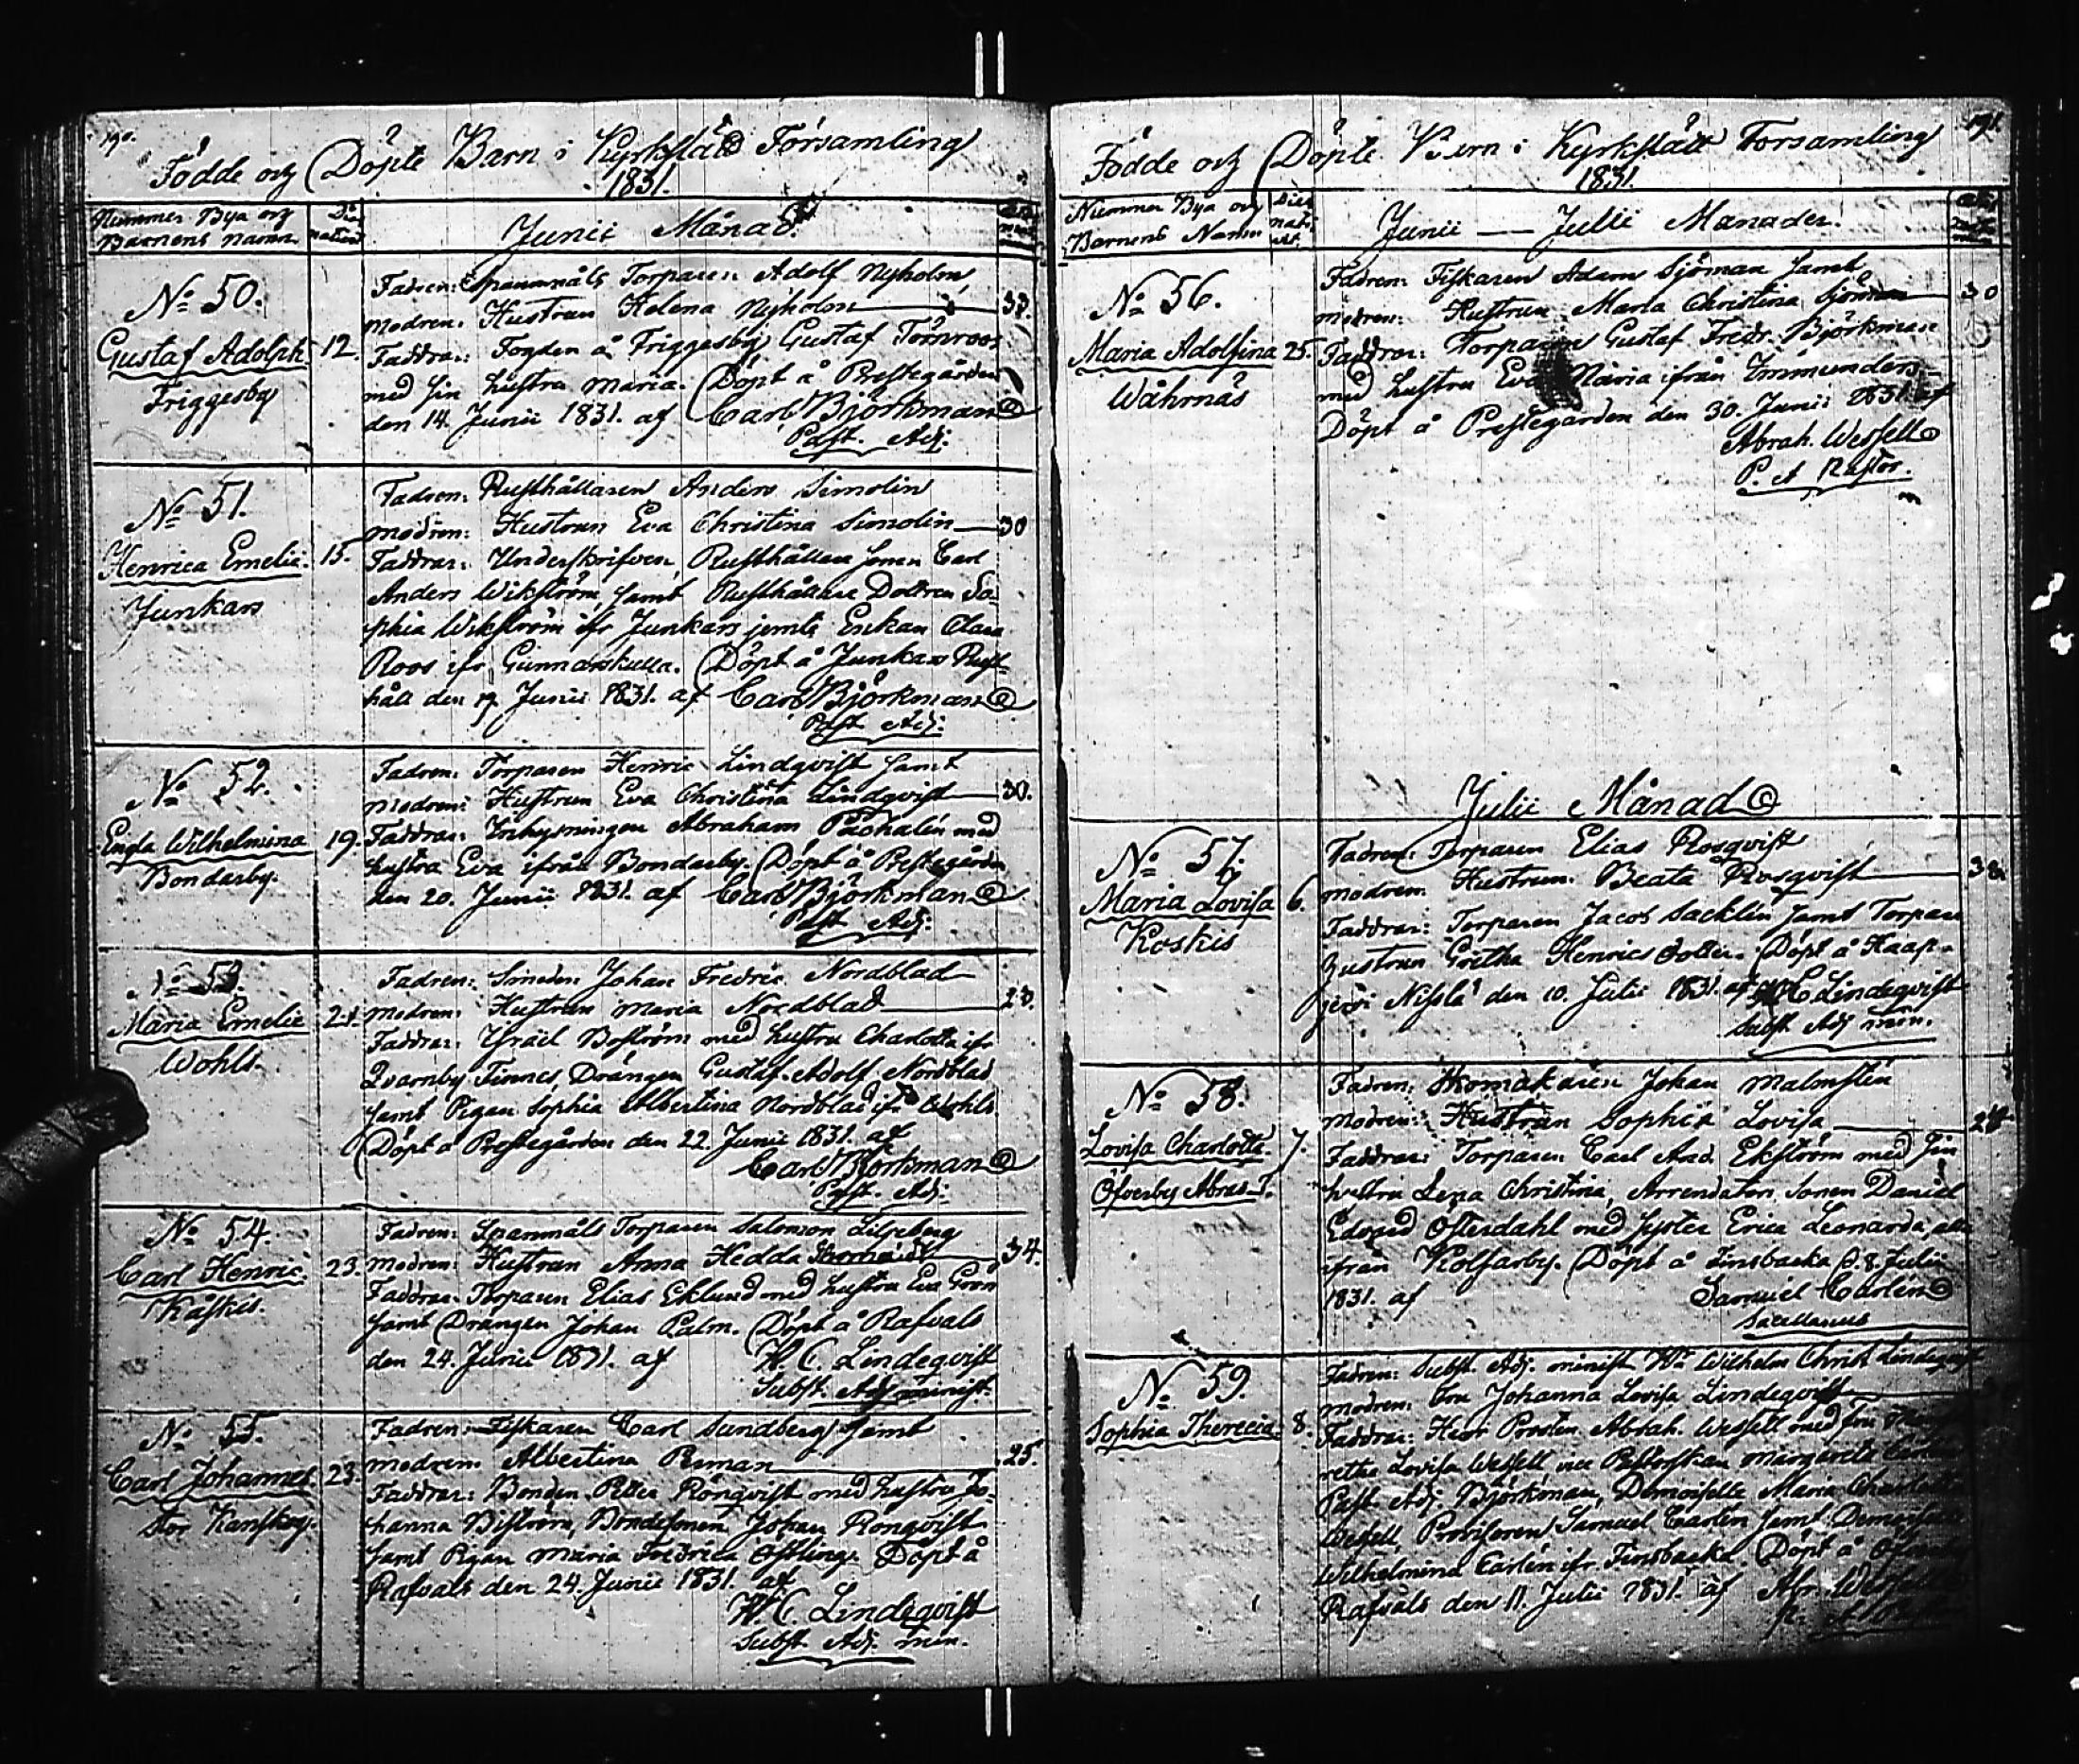 190.
Födde och Döpte Barn i Kyrkslätt Församling
1831.
Nummer Bya och
Barnens Namn
Junii Månad.
No 50.
Gustaf Adolph
Friggesby
12.
Fadren: Spannmåls Torparen Adolf Nyholm,
Modren: Hustrun Helena Nyholm
33.
Faddrar: Fogden å Friggesby Gustaf Törnroos
med sin hustru Maria. Döpt å Prestegården
den 14. Junii 1831. af Carl Björkman
Past. Adj:
No 51.
Henrica Emelie.
Junkars
15.
Fadren: Rusthållaren Anders Simolin
Modren: Hustrun Eva Christina Simolin
30
Faddrar: Underskrifven, Rusthållare Sonen Carl
Anders Wikström, samt Rusthållare Dottren So-
phia Wikström ifr Junkars jemte Enkan Clara
Roos ifr. Gunnarskulla. Döpt å Junkars Rust-
håll den 19. Junii 1831. af Carl Björkman
Past. Adj:
No 52.
Engla Wilhelmina
Bondarby.
19.
Fadren: Torparen Henric Lindqvist samt
Modren: Hustrun Eva Christina Lindqvist
30.
Faddrar: Inhysningen Abraham Paohalén med
hustru Eva ifrån Bondarby. Döpt å Prestegården
den 20. Junii 1831. af Carl Björkman
Past. Adj:
No 53.
Maria Emelie
Wohls.
21.
Fadren: Smeden Johan Fredric Nordblad
Modren: Hustrun Maria Nordblad
23.
Faddrar: Ysräel Boström med hustru Charlotta ifr
Qvarnby Finnes, Drängen Gustaf Adolf Nordblad
samt Pigan Sophia Albertina Nordblad ifr. Wohls
Döpt å Prestegården den 22. Junii 1831. af
Carl Björkman
Past. Adj:
No 54.
Carl Henric.
Kåskis.
23.
Fadren: Spanmåls Torparen Salomon Liljeberg
Modren: Hustrun Anna Hedda
34.
Faddrar: Torparen Elias Eklund med hustru Eva Grön
samt Drängen Johan Palm. Döpt å Rafvals
den 24. Junii 1831. af W. C. Lindeqvist
Subst. Adj minist.
No 55.
Carl Johannes.
Stor Kanskog.
23
Fadren: Fiskaren Carl Sundberg samt
Modren: Albertina Reman
25.
Faddrar: Bonden Petter Rönqvist med hustru Jo-
hanna Biström, Bondesonen Johan Rönqvist
samt Pigan Maria Fredrica Östling. Döpt å
Rafvals den 24. Junii 1831. af
W. C. Lindeqvist
Subst. Adj. min.
191.
Födde och Döpte Barn i Kyrkslätt Forsamling
1831.
Nummer Bya och
Barnens Namn
Junii — Julii Månader.
No 56.
Maria Adolfina
Wåhrnäs
25.
Fadren: Fiskaren Adam Sjöman samt
Modren: Hustrun Maria Christina Sjöman
30
Faddrar: Torparen Gustaf Fredr. Björkman
med hustru Eva Maria ifrån Ímmunders-
Döpt å Prestegården den 30. Junii 1831. af
Abrah. Wessell
P. et Rastor.
Julii Månad
No 57.
Maria Lovisa
Koskis
6.
Fadren: Torparen Elias Rosqvist
Modren: Hustrun Beata Rosqvist
Faddrar: Torparen Jacob Sacklin samt Torpare
hustrun Gretha Henrics dotter. Döpt å Haap-
jervi Nissla den 10. Julii 1831. af W C Lindeqvist
Subst Adj min.
No 58.
Lovisa Charlotta.
Öfverby
7.
Fadren: Skomakaren Johan Malmstén
Modren: Hustrun Sophia Lovisa
Faddrar: Torparen Carl And. Ekström med sin
hustru Lena Christina, Arrendators Sonen Daniel
Edvard Österdahl med syster Erica Leonarda, alla
ifrån Kolsarby. Döpt å Finsbacka d. 8. Julii
1831. af Samuel Carlén
Sacellanus
No 59.
Sophia Therecia.
8.
Fadren: Subst Adj. minist Wilhelm Christ. Lindeqvist
Modren: Fru Johanna Lovisa Lindeqvist
Faddrar: Herr Prosten Abrah. Wessell med fru Marga-
retha Lovisa Wessell, Margareta
Past. Adj Björkman, Demoiselle Maria Charlotta
Wessell, Provisoren Samuel Carlén samt Demoiselle
Wilhelmina Carlén ifr. Finsbacka. Döpt å
Rafvals den 11. Julii 1831. af Abr. Wessell